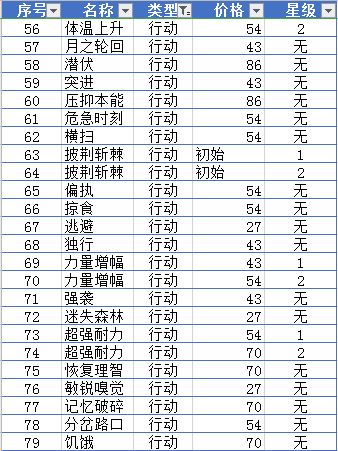 序号 名称 类型 价格 星级
56 体温上升 行动 54 2
57 月之轮回 行动 43 无
58 潜伏 行动 86 无
59 突进 行动 43 无
60 压抑本能 行动 86 无
61 危急时刻 行动 54 无
62 横扫 行动 54 无
63 披荆斩棘 行动 初始 1
64 披荆斩棘 行动 初始 2
65 偏执 行动 54 无
66 掠食 行动 54 无
67 逃避 行动 27 无
68 独行 行动 43 无
69 力量增幅 行动 43 1
70 力量增幅 行动 54 2
71 强袭 行动 43 无
72 迷失森林 行动 27 无
73 超强耐力 行动 54 1
74 超强耐力 行动 70 2
75 恢复理智 行动 70 无
76 敏锐嗅觉 行动 27 无
77 记忆破碎 行动 70 无
78 分岔路口 行动 54 无
79 饥饿 行动 70 无